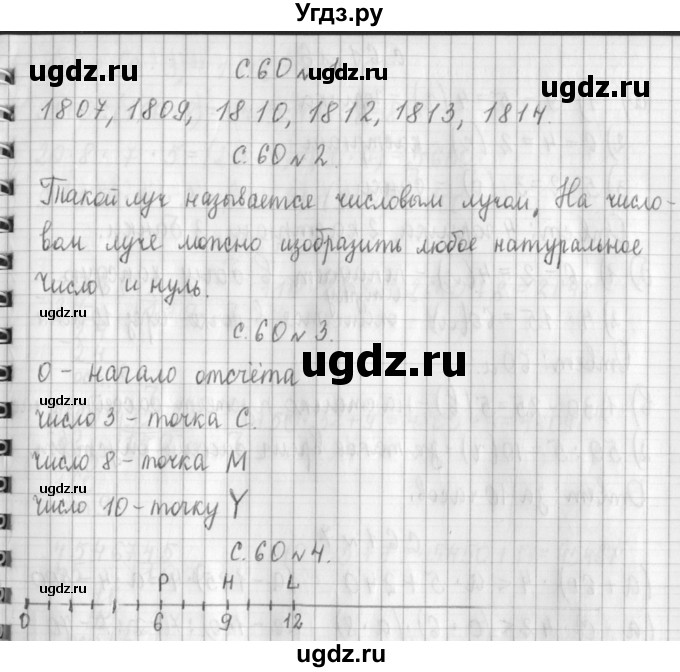 Угдз.ру
ugdz.ru ugdz.ru
с.60 № 1
ugdz.ru
1807, 1809, 1810, 1812, 1813, 1814.
ugdz.ru с.60 № 2. ugdz.ru
Такой луч называется числовым лучом. На число-
вом луче можно изобразить любое натуральное
число и нуль.
ugdz.ru
с.60 № 3.
ugdz.ru
0 - начало отсчёта
ugdz.ru
число 3 - точка С.
число 8 - точка M
ugdz.ru ugdz.ru
число 10 - точку Y
с.60 № 4.
ugdz.ru P H L ugdz.ru
0 6 9 12
ugdz.ru ugdz.ru